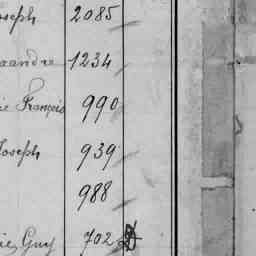 oseph 2085
xandre 1234
ie François 990
Joseph 939
988
ie Guy 702